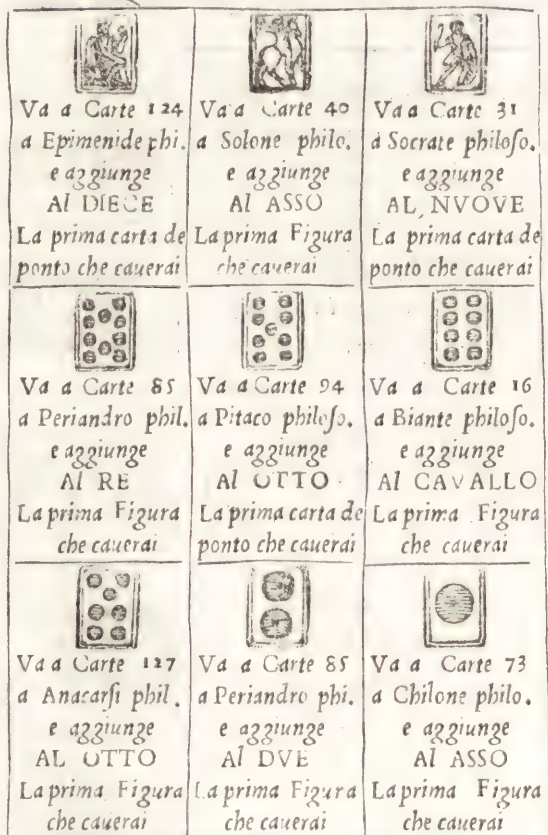 Va a Carte 124
a Epimenide phi.
e aggiunge
Al DIECE
La prima carta de
ponto che cauerai
Va a Carte 40
a Solone philo.
e aggiunge
Al ASSO
La prima Figura
che cauerai
Va a Carte 31
a Socrate philoſo.
e aggiunge
AL NVOVE
La prima carta de
ponto che cauerai
Va a Carte 85
a Periandro phil.
e aggiunge
Al RE
La prima Figura
che cauerai
Va a Carte 94
a Pitaco philoſo.
e aggiunge
Al OTTO
La prima carta de
ponto che cauerai
Va a Carte 16
a Biante philoſo.
e aggiunge
Al CAVALLO
La prima Figura
che cauerai
Va a Carte 127
a Anacarſi phil.
e aggiunge
AL OTTO
La prima Figura
che cauerai
Va a Carte 85
a Periandro phi.
e aggiunge
Al DVE
La prima Figura
che cauerai
Va a Carte 73
a Chilone philo.
e aggiunge
Al ASSO
La prima Figura
che cauerai